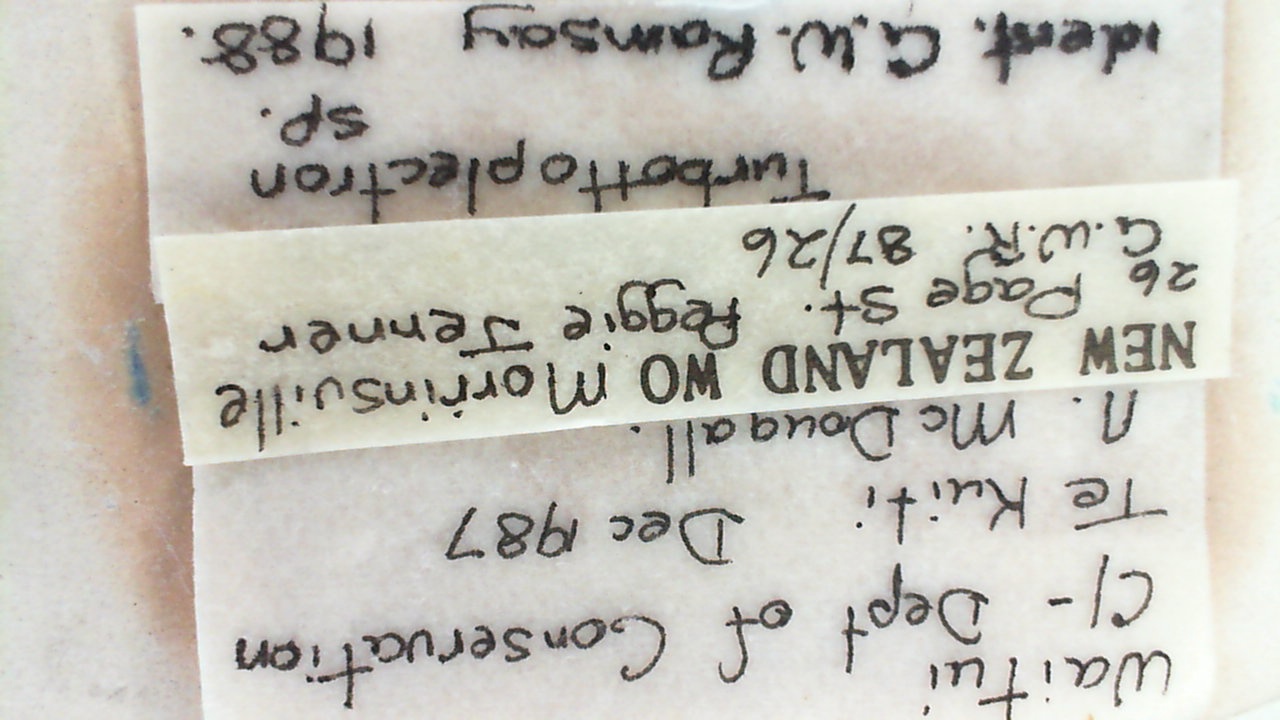 Waitui
C/- Dept of Conservation
Te Kuiti Dec 1987
N. McDougall.
NEW ZEALAND WO Morrinsville
26 Page St. Peggie Jenner
G.W.R. 87/26
Turbottoplectron
sp.
ident. G.W. Ramsay 1988.